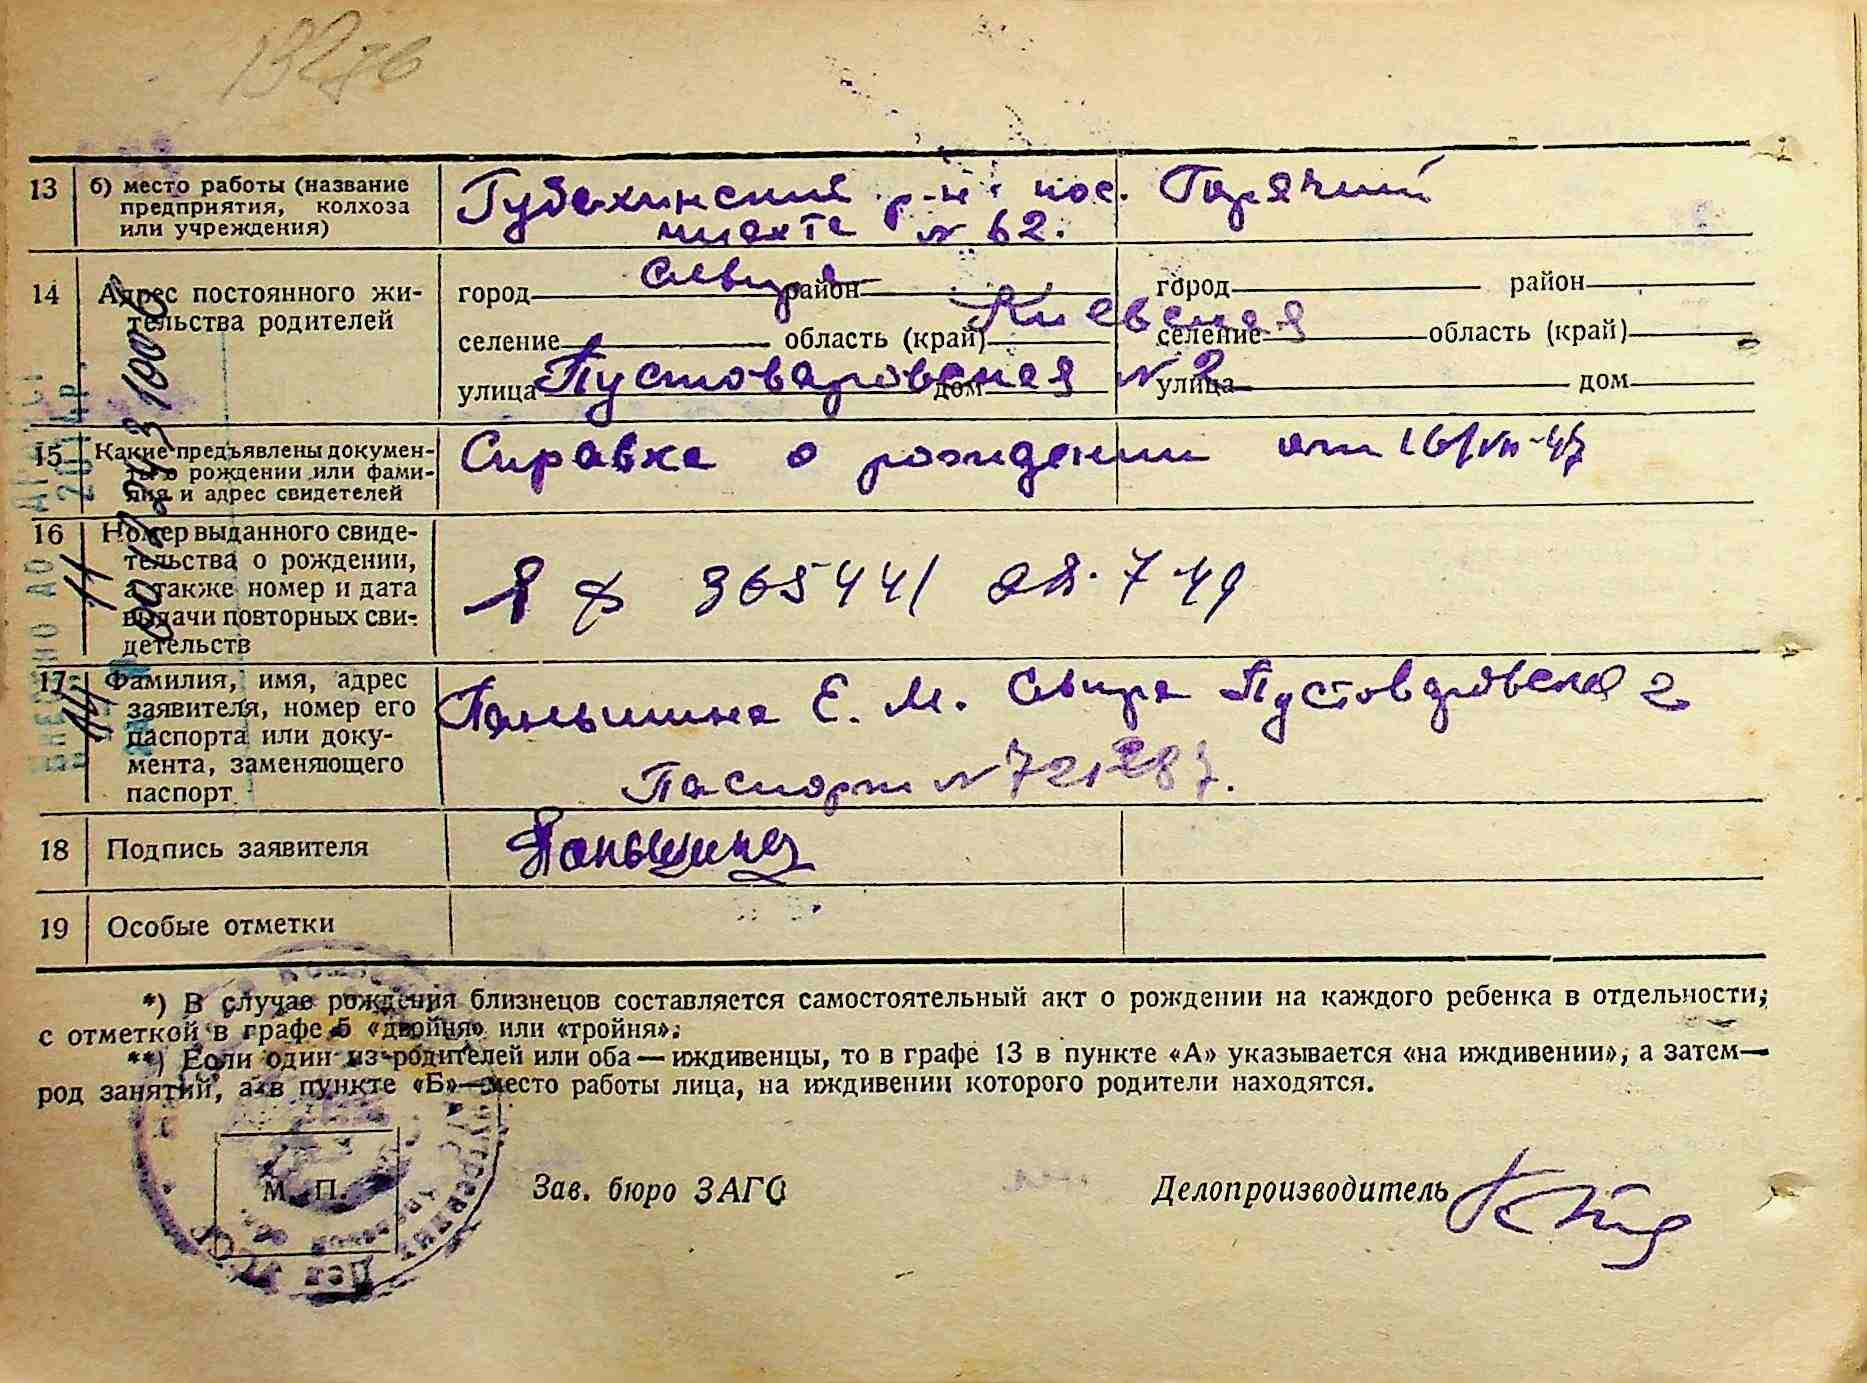 13276
13 б) место работы (название предприятия, колхоза или учреждения) Губахинский р-н пос. Горячий
шахта № 62.
14 Адрес постоянного жительства родителей
город Сквира район город район
селение область (край) Киевская селение область (край)
улица Пустоваровская дом № 2 улица дом
15 Какие предъявлены документы о рождении или фамилия и адрес свидетелей Справка о рождении от 16/VII-47
16 Номер выданного свидетельства о рождении, а также номер и дата выдачи повторных свидетельств 365441 7-49
17 Фамилия, имя, адрес заявителя, номер его паспорта или документа, заменяющего паспорт Паньшина Е. М. Сквира Пустоваровская 2
Паспорт № 721287.
18 Подпись заявителя Паньшина
19 Особые отметки
*) В случае рождения близнецов составляется самостоятельный акт о рождении на каждого ребенка в отдельности;
с отметкой в графе 5 «двойня» или «тройня»;
**) Если один из родителей или оба — иждивенцы, то в графе 13 в пункте «А» указывается «на иждивении», а затем—
род занятий, а в пункте «Б»—место работы лица, на иждивении которого родители находятся.
М. П. Зав. бюро ЗАГС Делопроизводитель